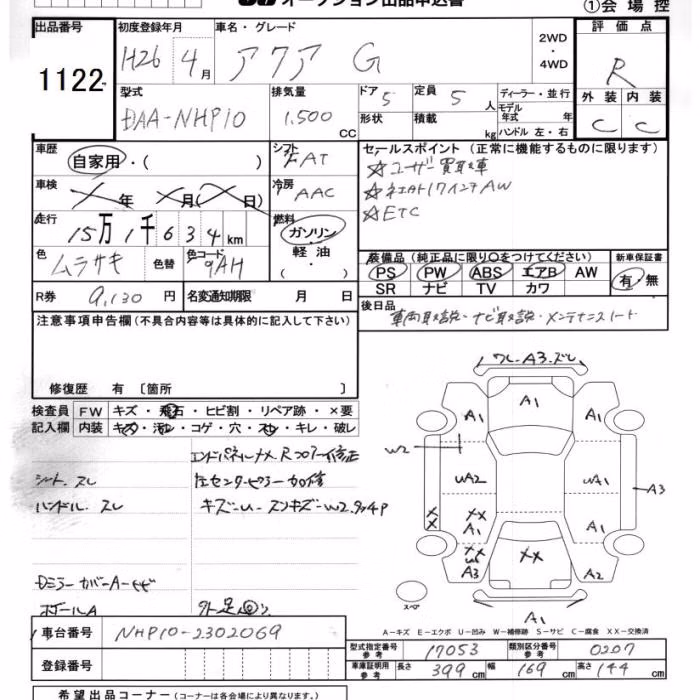 オークション出品申込書
①会場控
出品番号 1122
初度登録年月 H26 4月
車名・グレード アクア G
2WD・4WD
評価点 R
外装 C 内装 C
型式 DAA-NHP10
排気量 1,500 CC
ドア 5
形状
定員 5 人
積載 kg
ディーラー・並行
モデル年式 年
ハンドル 左・右
車歴 自家用・( )
シフト FAT
セールスポイント(正常に機能するものに限ります)
☆ユーザー買取車
☆ETC
車検 年 月( 日)
冷房 AAC
走行 15万1千634km
燃料 ガソリン・軽油・( )
色 ムラサキ 色替
色コード 9AH
装備品(純正品に限り○をつけてください)
PS PW ABS エアB AW
SR ナビ TV カワ
新車保証書 有・無
R券 9,130円
名変通知期限 月 日
後日品 車両取説・ナビ取説・メンテナンスノート
注意事項申告欄(不具合内容等は具体的に記入して下さい)
修復歴 有〔箇所 〕
検査員記入欄
FW キズ・飛石・ヒビ割・リペア跡・×要
内装 キズ・汚レ・コゲ・穴・スレ・キレ・破レ
シート スレ
ハンドル スレ
ワレ A3 ズレ
A1
A1 A1
W2
UA2 UA1
A3
XX
XX A1 A1
XX
A3 XX A2
A1
スペア
A-キズ E-エクボ U-凹み W-補修跡 S-サビ C-腐食 XX-交換済
車台番号 NHP10-2302069
登録番号
型式指定番号 参考 17053
類別区分番号 参考 0207
車庫証明用 参考 長さ 399cm 幅 169cm 高さ 144cm
希望出品コーナー(コーナーは各会場により異なります。)